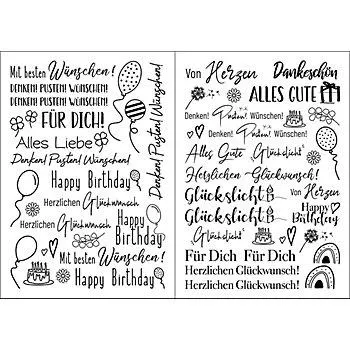 Mit besten Wünschen!
DENKEN! PUSTEN! WÜNSCHEN!
DENKEN! PUSTEN! WÜNSCHEN!
FÜR DICH!
Alles Liebe
Denken! Pusten! Wünschen!
Denken! Pusten! Wünschen!
Happy Birthday
Herzlichen Glückwunsch!
Happy Birthday
Mit besten Wünschen!
Happy Birthday
Von Herzen
Dankeschön
ALLES GUTE
Denken! Pusten! Wünschen!
Denken! Pusten! Wünschen!
Alles Gute
Glückslicht
Herzlichen Glückwunsch!
Glückslicht
Von Herzen
Glückslicht
Happy Birthday
Glückslicht
Für Dich Für Dich
Herzlichen Glückwunsch!
Herzlichen Glückwunsch!